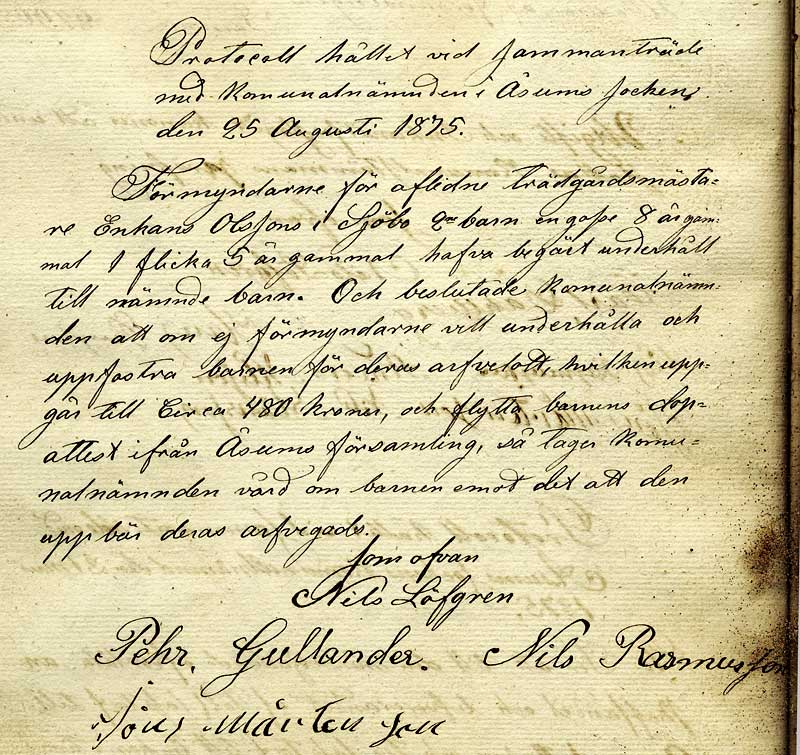 Protocoll hållet vid sammanträde
med Komunalnämnden i Åsums socken,
den 25 Augusti 1875.
Förmyndarne för aflidne trädgårdsmästa=
re Enhans Olssons i Sjöbo 2ne barn en gosse 8 år gam=
mal 1 flicka 5 år gammal hafva begärt underhåll
till nämnde barn. Och beslutade Komunalnämn=
den att om ej förmyndarne vill underhålla och
uppfostra barnen för deras arfvelott, hvilken upp=
går till Circa 480 kronor, och flytta barnens Dop=
attest ifrån Åsums församling, så tager Komu=
nalnämnden vård om barnen emot det att den
uppbär deras arfvegods.
Som ofvan
Nils Löfgren
Pehr. Gullander. Nils Rasmusson
Jöns Mårtensson